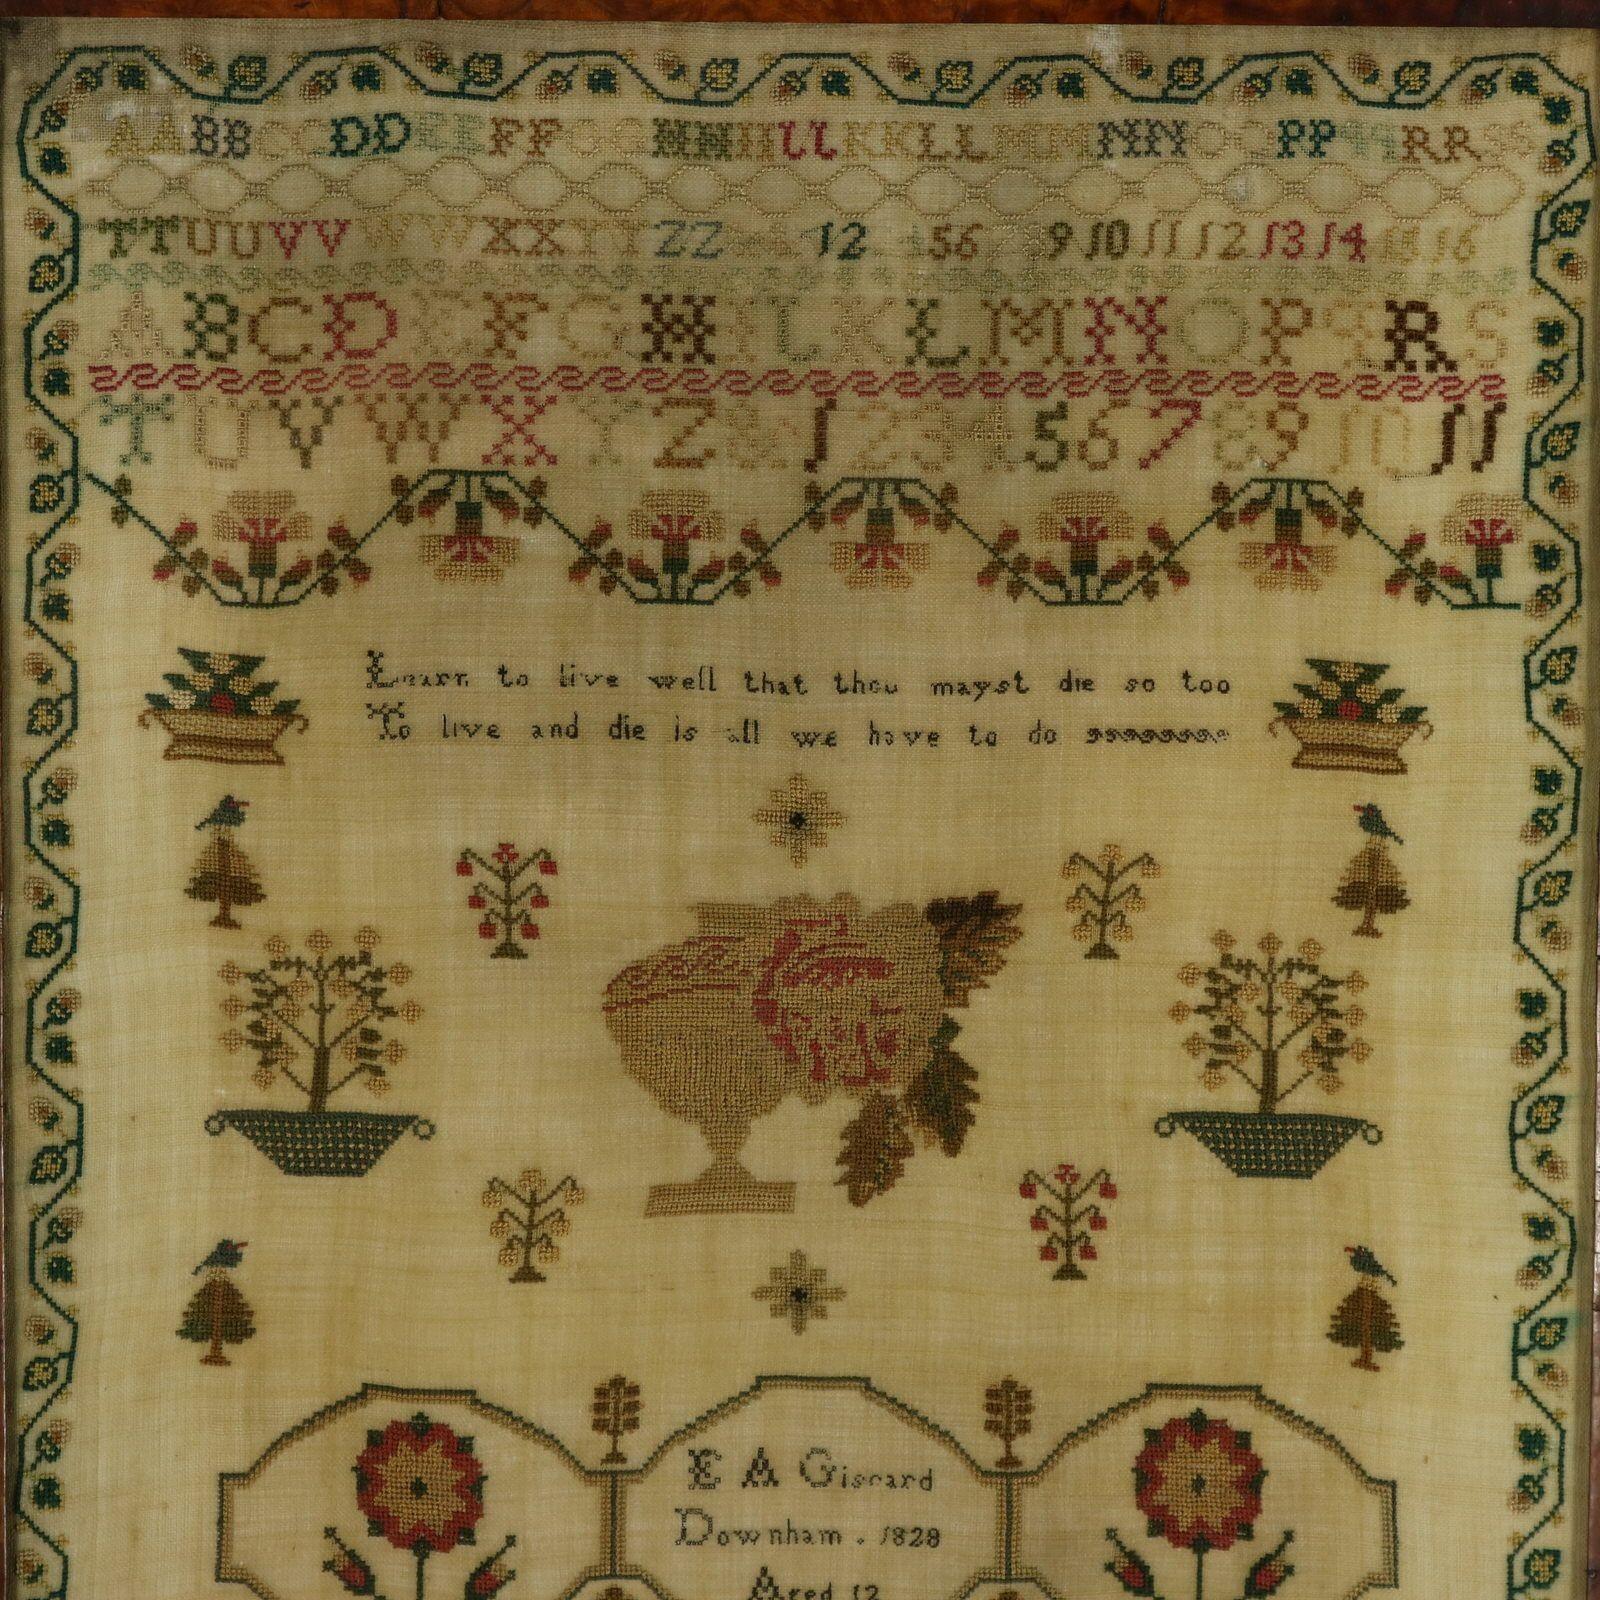 AABBCCDDEEFFGGHHIIJJKKLLMMNNOOPPQQRRSS
TTUUVVWWXXYYZZ 12 56 9 10 11 12 13 14 15 16
ABCDEFGHIJKLMNOPQRS
TUVWXYZ& 1 2 3 4 5 6 7 8 9 10 11
Learn to live well that thou mayst die so too
To live and die is all we have to do
E A Giscard
Downham . 1828
Aged 12